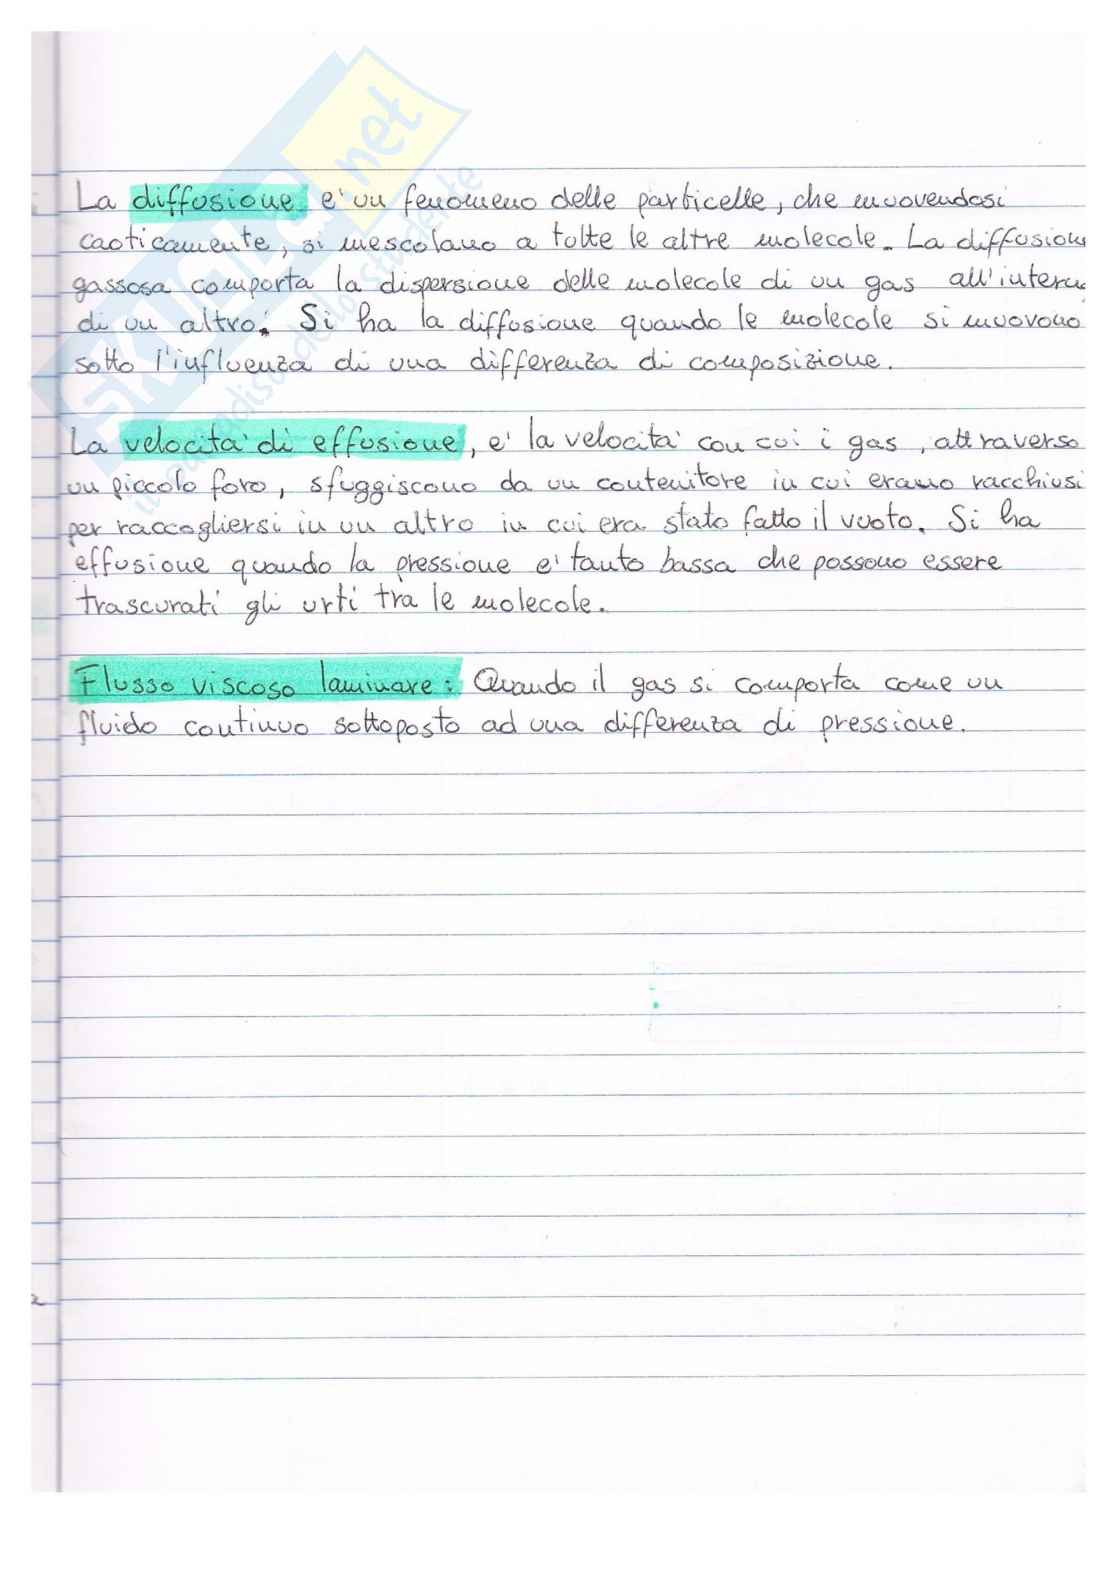 SKUOLA.net
il paradiso dello studente
La diffusione e' un fenomeno delle particelle, che muovendosi
caoticamente, si mescolano a tutte le altre molecole. La diffusion
gassosa comporta la dispersione delle molecole di un gas all'intern
di un altro. Si ha la diffusione quando le molecole si muovono
sotto l'influenza di una differenza di composizione.
La velocita' di effusione, e' la velocita' con cui i gas, attraverso
un piccolo foro, sfuggiscono da un contenitore in cui erano racchiusi
per raccogliersi in un altro in cui era stato fatto il vuoto. Si ha
effusione quando la pressione e' tanto bassa che possono essere
trascurati gli urti tra le molecole.
Flusso viscoso laminare: Quando il gas si comporta come un
fluido continuo sottoposto ad una differenza di pressione.